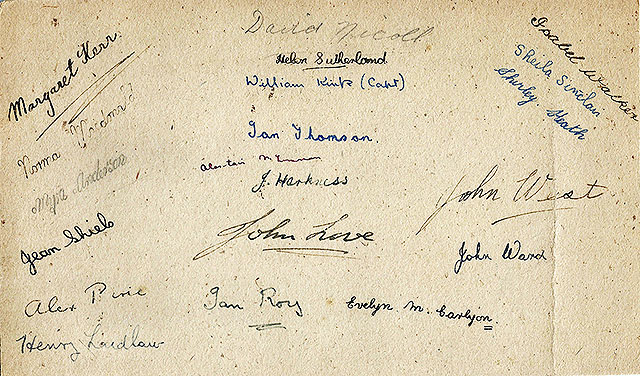 David Nicoll
Margaret Kerr.
Helen Sutherland
William Kirk (Capt)
Isabel Walker
Sheila Sinclair
Shirley Heath
Norma
Ian Thomson.
Myra Anderson
Alastair
J. Harkness
John West
Jean Shiels
John Love
John Ward
Alex Pirie
Ian Roy
Evelyn M. Carlyon
Henry Laidlaw